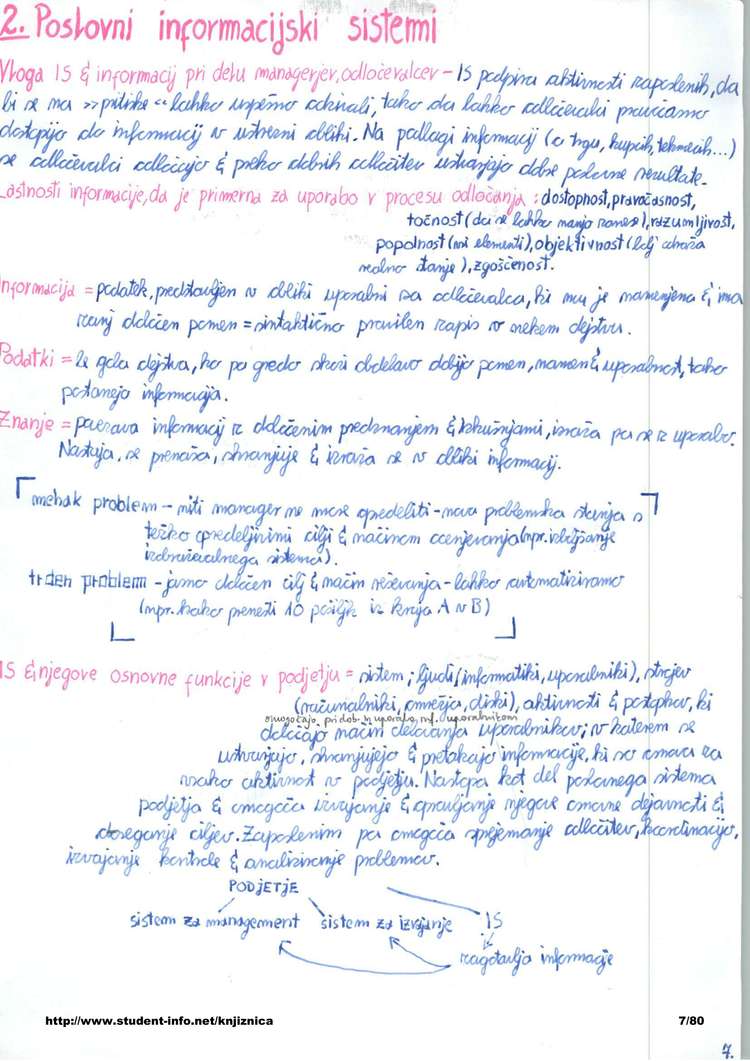 2. Poslovni informacijski sistemi
Vloga IS & informacij pri delu managerjev, odločevalcev – IS podpira aktivnosti zaposlenih, da
bi se na »pritiske« lahko uspešno odzivali, tako da lahko odločevalci pravočasno
dostopijo do informacij v ustrezni obliki. Na podlagi informacij (o trgu, kupcih, tekmecih...)
se odločevalci odločajo & preko dobrih odločitev ustvarjajo dobre poslovne rezultate.
Lastnosti informacije, da je primerna za uporabo v procesu odločanja: dostopnost, pravočasnost,
točnost (da se lahko nanjo zanese), razumljivost,
popolnost (vsi elementi), objektivnost (bolj odraža
realno stanje), zgoščenost.
Informacija = podatek, predstavljen v obliki uporabni za odločevalca, ki mu je namenjena & ima
zanj določen pomen = sintaktično pravilen zapis o nekem dejstvu.
Podatki = le gola dejstva, ko pa gredo skozi obdelavo dobijo pomen, namen & uporabnost, tako
postanejo informacija.
Znanje = povezava informacij z določenim predznanjem & izkušnjami, izraža pa se z uporabo.
Nastaja, se prenaša, shranjuje & izraža se v obliki informacij.
mehak problem – niti manager ne more opredeliti - nova problemska stanja s
težko opredeljivimi cilji & načinom ocenjevanja (npr. izboljšanje
izobraževalnega sistema).
trden problem – jasno določen cilj & način reševanja - lahko avtomatiziramo
(npr. kako prenesti 10 pošiljk iz kraja A v B)
IS & njegove osnovne funkcije v podjetju = sistem; ljudi (informatiki, uporabniki), strojev
(računalniki, omrežja, diski), aktivnosti & postopkov, ki
omogočajo pridob. in uporabo inf. uporabnikom
določajo način delovanja uporabnikov; v katerem se
ustvarjajo, shranjujejo & pretakajo informacije, ki so osnova za
vsako aktivnost v podjetju. Nastopa kot del poslovnega sistema
podjetja & omogoča izvajanje & opravljanje njegove osnovne dejavnosti &
doseganje ciljev. Zaposlenim pa omogoča sprejemanje odločitev, koordinacijo,
izvajanje kontrole & analiziranje problemov.
PODJETJE
sistem za management sistem za izvajanje IS
zagotavlja informacije
http://www.student-info.net/knjiznica 7/80
7.